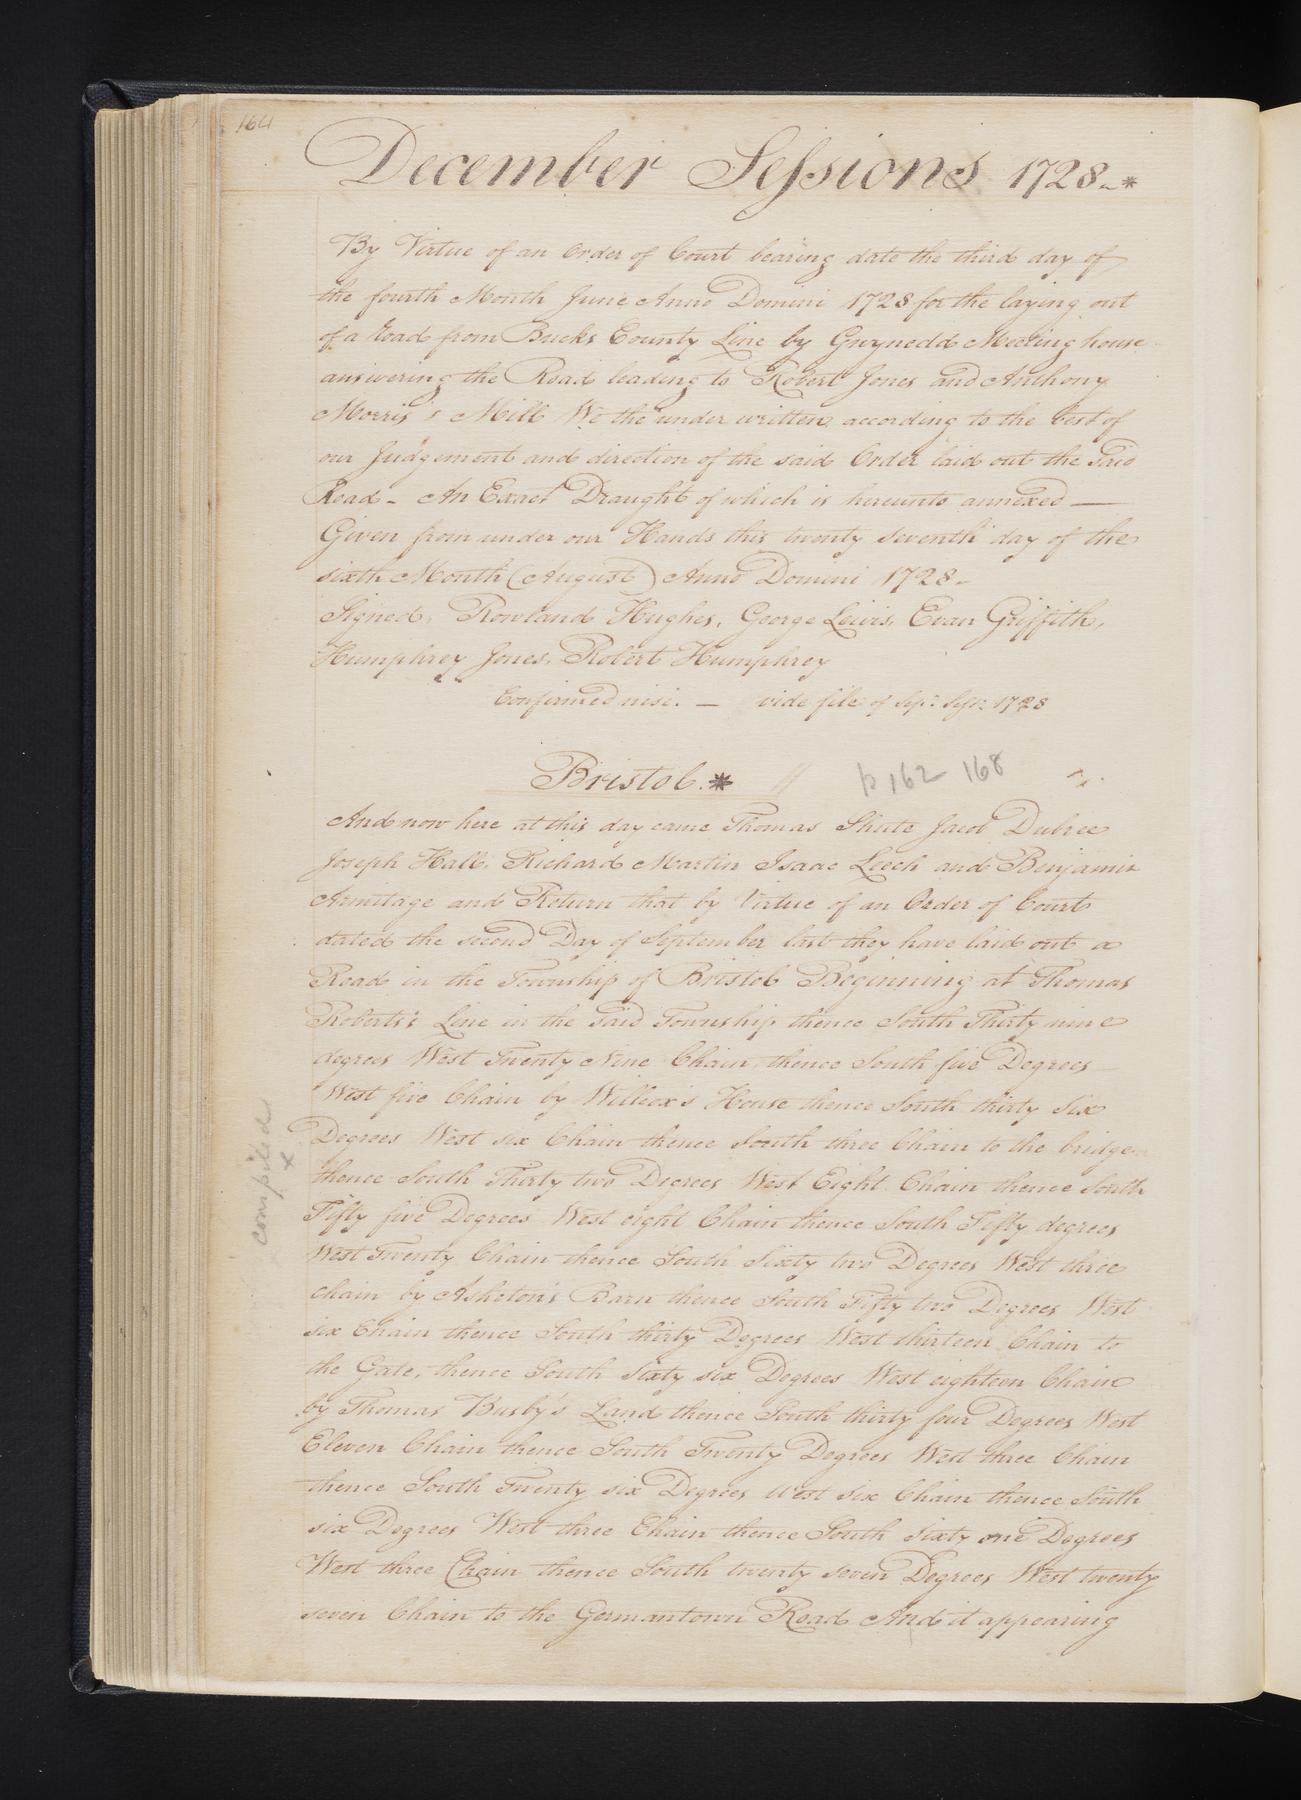 164
December Sessions 1728 *
By Virtue of an Order of Court bearing date the third day of
the fourth Month June Anno Domini 1728 for the laying out
of a Road from Bucks County Line by Gwynedd Meeting house
answering the Road leading to Robert Jones and Anthony
Morris's Mill We the under written according to the best of
our Judgement and direction of the said Order laid out the Said
Road - An Exact Draught of which is hereunto annexed —
Given from under our Hands this twenty seventh day of the
sixth Month (August) Anno Domini 1728 -
Signed, Rowland Hughes, George Lewis, Evan Griffith,
Humphrey Jones, Robert Humphrey
Confirmed nisi. — vide file of Sep: Sess: 1728
Bristol. * // p 162 168
And now here at this day came Thomas Shute Jacob Dubree
Joseph Hall, Richard Martin Isaac Leech and Benjamin
Armitage and Return that by Virtue of an Order of Court
dated the second Day of September last they have laid out a
Road in the Township of Bristol Beginning at Thomas
Roberts's Line in the Said Township thence South Thirty nine
degrees West Twenty Nine Chain, thence South five Degrees
West five Chain by Willcox's House thence South thirty Six
Degrees West six Chain thence South three Chain to the bridge
thence South Thirty two Degrees West Eight Chain thence South
Fifty five Degrees West eight Chain thence South Fifty degrees
West Twenty Chain thence South Sixty two Degrees West three
chain by Asheton's Barn thence South Fifty two Degrees West
six Chain thence South thirty Degrees West thirteen Chain to
the Gate, thence South Sixty six Degrees West eighteen Chain
by Thomas Busby's Land thence South thirty four Degrees West
Eleven Chain thence South Twenty Degrees West three Chain
thence South Twenty six Degrees West Six Chain thence South
six Degrees West three Chain thence South Sixty one Degrees
West three Chain thence South twenty seven Degrees West twenty
seven Chain to the Germantown Road And it appearing
compiled
x